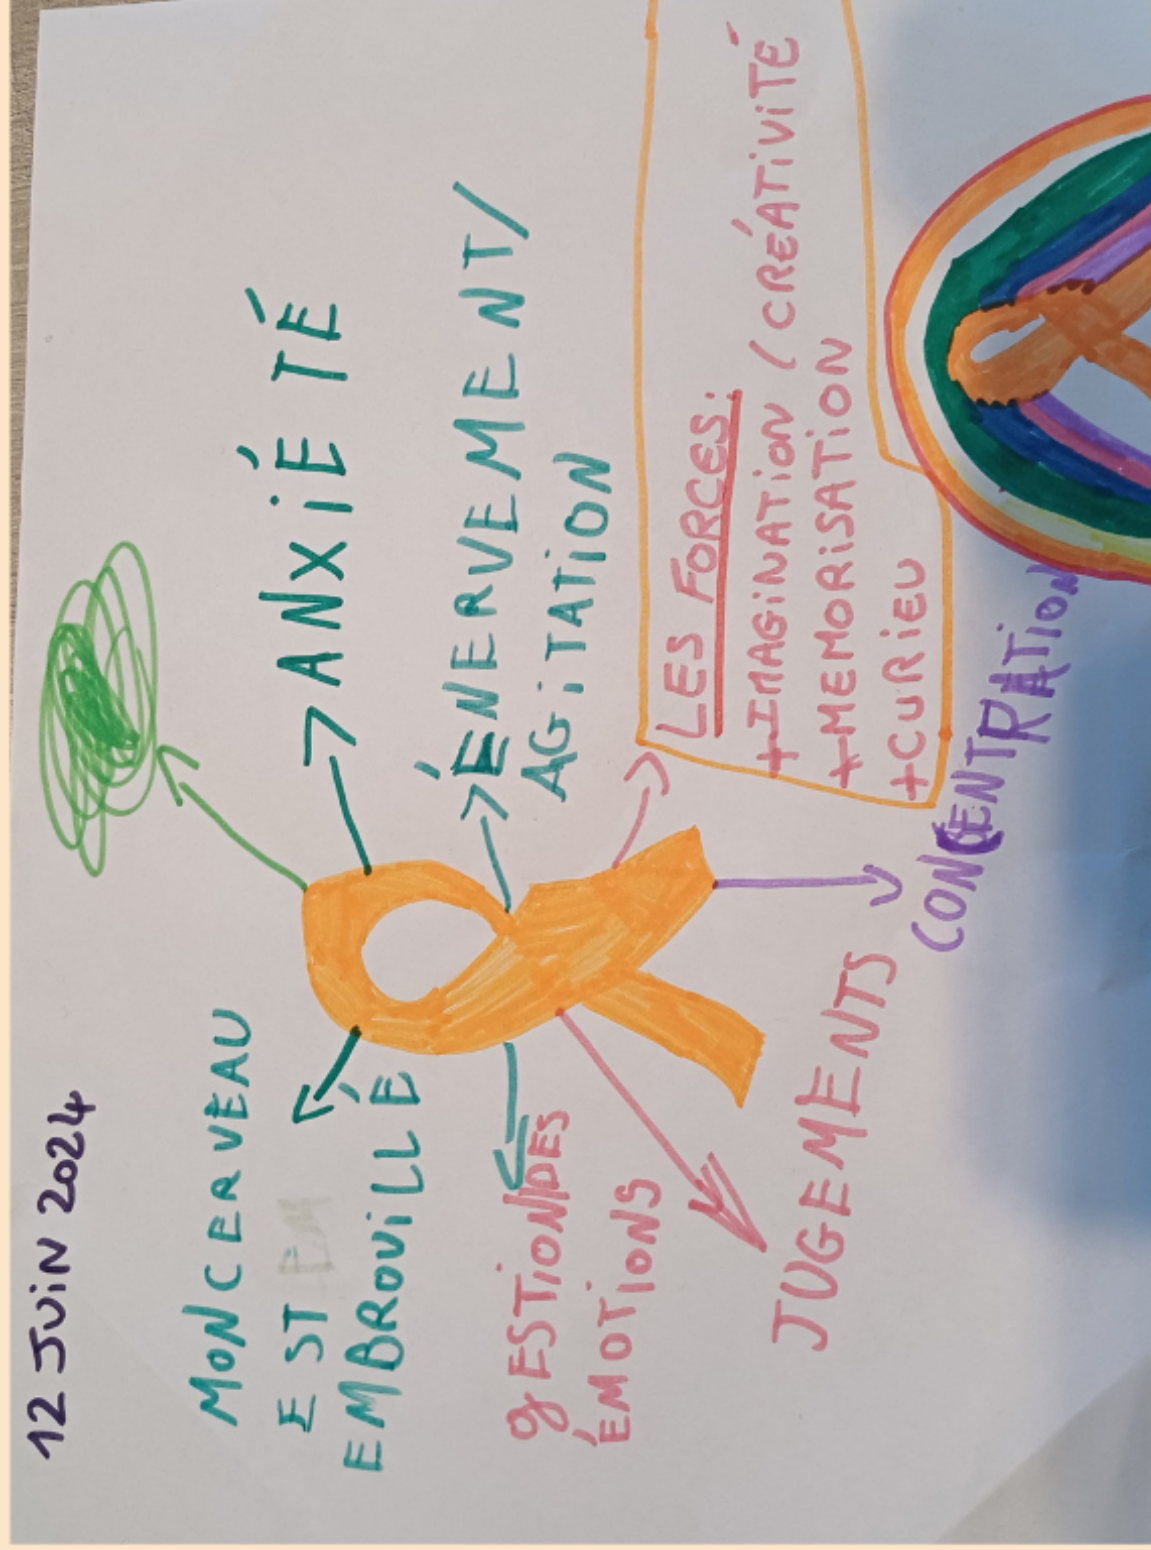 12 JUiN 2024
MON CERVEAU
EST EM
EMBROUiLLÉ
ANXiÉTÉ
ÉNERVEMENT/
AGiTATiON
gESTiON DES
ÉMOTiONS
JUGEMENTS
CONCENTRATiON
LES FORCES:
+IMAGiNATiON / CRÉATiViTÉ
+MEMORiSATiON
+CURiEU